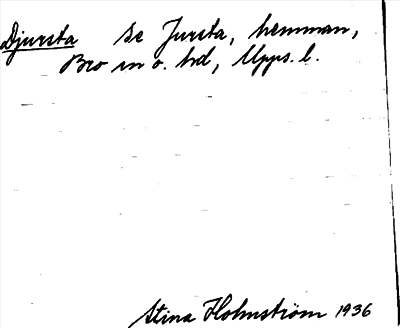 Djursta se Jursta, hemman,
Bro sn o. hd, Upps. l.
Stina Holmström 1936